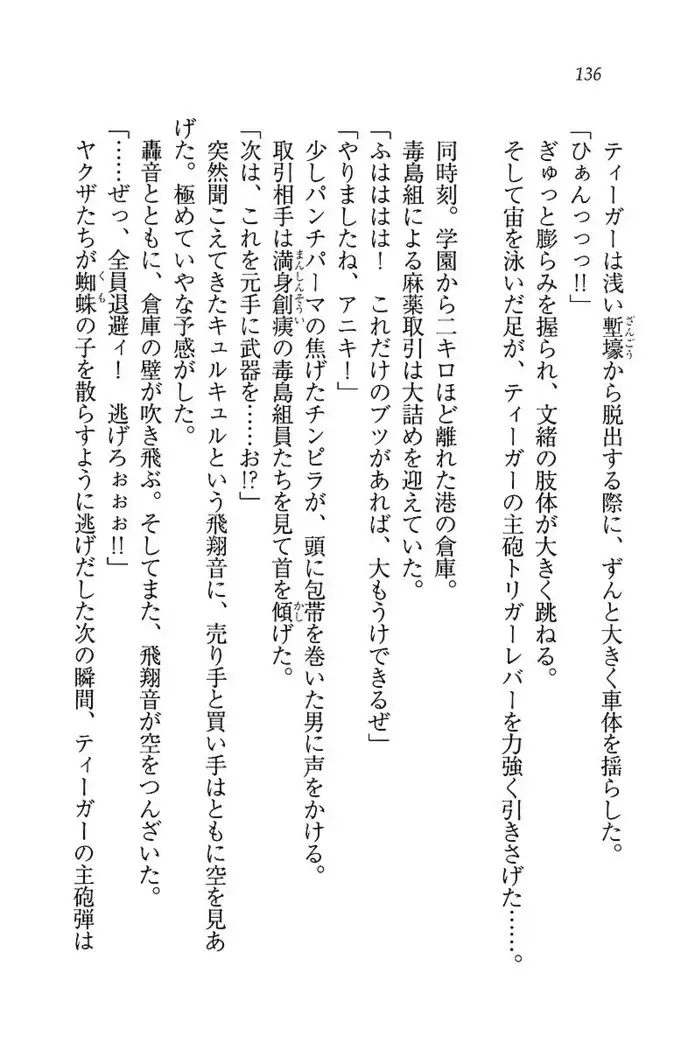 136
ティーガーは浅い塹壕から脱出する際に、ずんと大きく車体を揺らした。
「ひぁんっっっ!!」
ぎゅっと膨らみを握られ、文緒の肢体が大きく跳ねる。
そして宙を泳いだ足が、ティーガーの主砲トリガーレバーを力強く引きさげた……。
同時刻。学園から二キロほど離れた港の倉庫。
毒島組による麻薬取引は大詰めを迎えていた。
「ふはははは！　これだけのブツがあれば、大もうけできるぜ」
「やりましたね、アニキ！」
少しパンチパーマの焦げたチンピラが、頭に包帯を巻いた男に声をかける。
取引相手は満身創痍の毒島組員たちを見て首を傾げた。
「次は、これを元手に武器を……お!?」
突然聞こえてきたキュルキュルという飛翔音に、売り手と買い手はともに空を見あ
げた。極めていやな予感がした。
轟音とともに、倉庫の壁が吹き飛ぶ。そしてまた、飛翔音が空をつんざいた。
「……ぜっ、全員退避ィ！　逃げろぉぉぉ!!」
ヤクザたちが蜘蛛の子を散らすように逃げだした次の瞬間、ティーガーの主砲弾は